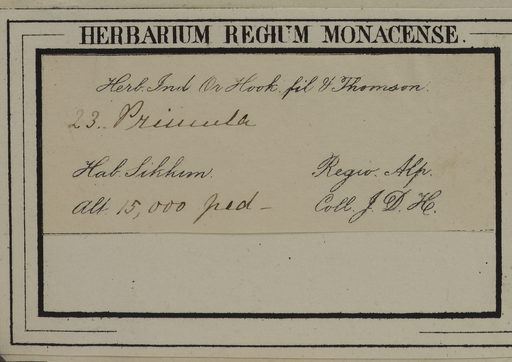 HERBARIUM REGIUM MONACENSE.
Herb. Ind Or Hook fil & Thomson.
23. Primula
Hab. Sikkim. Regio. Alp.
Alt. 15,000 ped - Coll. J. D. H.